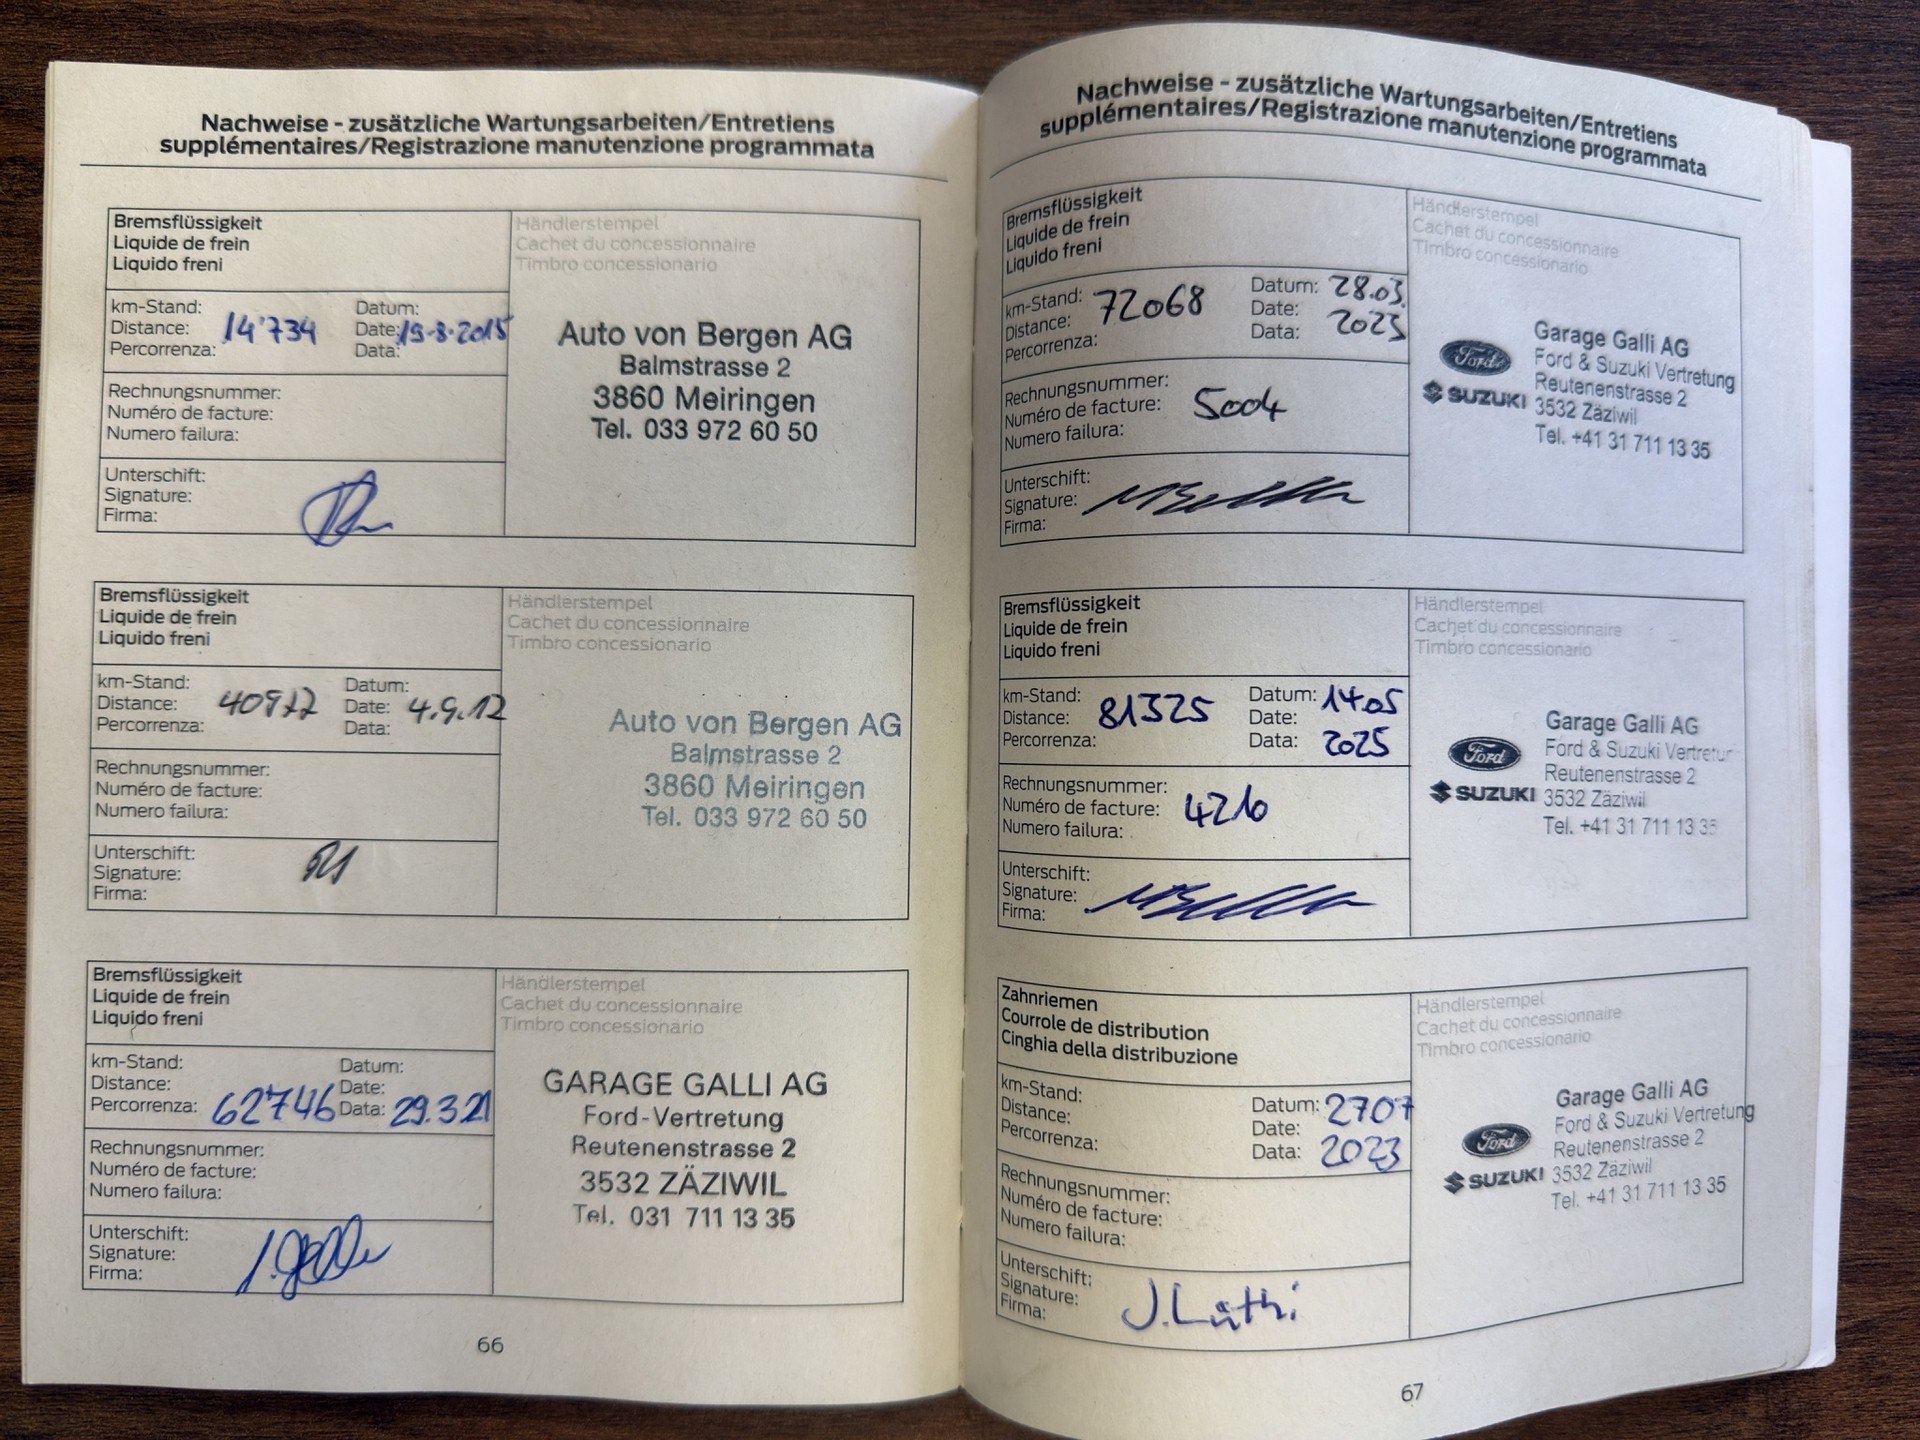 Nachweise - zusätzliche Wartungsarbeiten/Entretiens
supplémentaires/Registrazione manutenzione programmata
Bremsflüssigkeit
Liquide de frein
Liquido freni
Händlerstempel
Cachet du concessionnaire
Timbro concessionario
km-Stand:
Distance: 14'734
Percorrenza:
Datum:
Date: 19-8-2015
Data:
Rechnungsnummer:
Numéro de facture:
Numero failura:
Unterschift:
Signature:
Firma:
Auto von Bergen AG
Balmstrasse 2
3860 Meiringen
Tel. 033 972 60 50
Bremsflüssigkeit
Liquide de frein
Liquido freni
Händlerstempel
Cachet du concessionnaire
Timbro concessionario
km-Stand:
Distance:
Percorrenza:
Datum:
Date: 4.9.12
Data:
Rechnungsnummer:
Numéro de facture:
Numero failura:
Unterschift:
Signature:
Firma:
Auto von Bergen AG
Balmstrasse 2
3860 Meiringen
Tel. 033 972 60 50
Bremsflüssigkeit
Liquide de frein
Liquido freni
Händlerstempel
Cachet du concessionnaire
Timbro concessionario
km-Stand:
Distance:
Percorrenza: 62'746
Datum:
Date:
Data: 29.3.21
Rechnungsnummer:
Numéro de facture:
Numero failura:
Unterschift:
Signature:
Firma:
GARAGE GALLI AG
Ford-Vertretung
Reutenenstrasse 2
3532 ZÄZIWIL
Tel. 031 711 13 35
66
Nachweise - zusätzliche Wartungsarbeiten/Entretiens
supplémentaires/Registrazione manutenzione programmata
Bremsflüssigkeit
Liquide de frein
Liquido freni
Händlerstempel
Cachet du concessionnaire
Timbro concessionario
km-Stand: 72068
Distance:
Percorrenza:
Datum: 28.03.
Date:
Data: 2023
Rechnungsnummer:
Numéro de facture: 5004
Numero failura:
Unterschift:
Signature:
Firma:
Ford
SUZUKI
Garage Galli AG
Ford & Suzuki Vertretung
Reutenenstrasse 2
3532 Zäziwil
Tel. +41 31 711 13 35
Bremsflüssigkeit
Liquide de frein
Liquido freni
Händlerstempel
Cachet du concessionnaire
Timbro concessionario
km-Stand:
Distance: 81325
Percorrenza:
Datum: 14.05
Date:
Data: 2025
Rechnungsnummer:
Numéro de facture: 4210
Numero failura:
Unterschift:
Signature:
Firma:
Ford
SUZUKI
Garage Galli AG
Ford & Suzuki Vertretur
Reutenenstrasse 2
3532 Zäziwil
Tel. +41 31 711 13 35
Zahnriemen
Courrole de distribution
Cinghia della distribuzione
Händlerstempel
Cachet du concessionnaire
Timbro concessionario
km-Stand:
Distance:
Percorrenza:
Datum: 2707
Date:
Data: 2023
Rechnungsnummer:
Numéro de facture:
Numero failura:
Unterschift:
Signature: J. Lüthi
Firma:
Ford
SUZUKI
Garage Galli AG
Ford & Suzuki Vertretung
Reutenenstrasse 2
3532 Zäziwil
Tel. +41 31 711 13 35
67